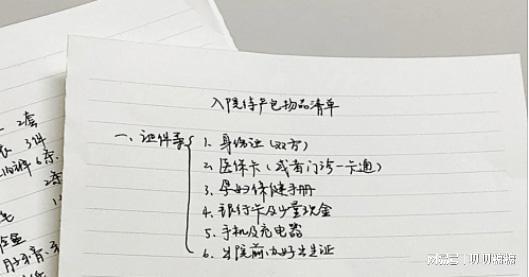 入院待产包物品清单
一、证件类 1. 身份证(双方)
2. 医保卡(或者门诊一卡通)
3. 孕妇保健手册
4. 银行卡及少量现金
5. 手机及充电器
6. 出院前办好出生证
2套
3件
6条
2条
搜狐号@贝贝糖糖